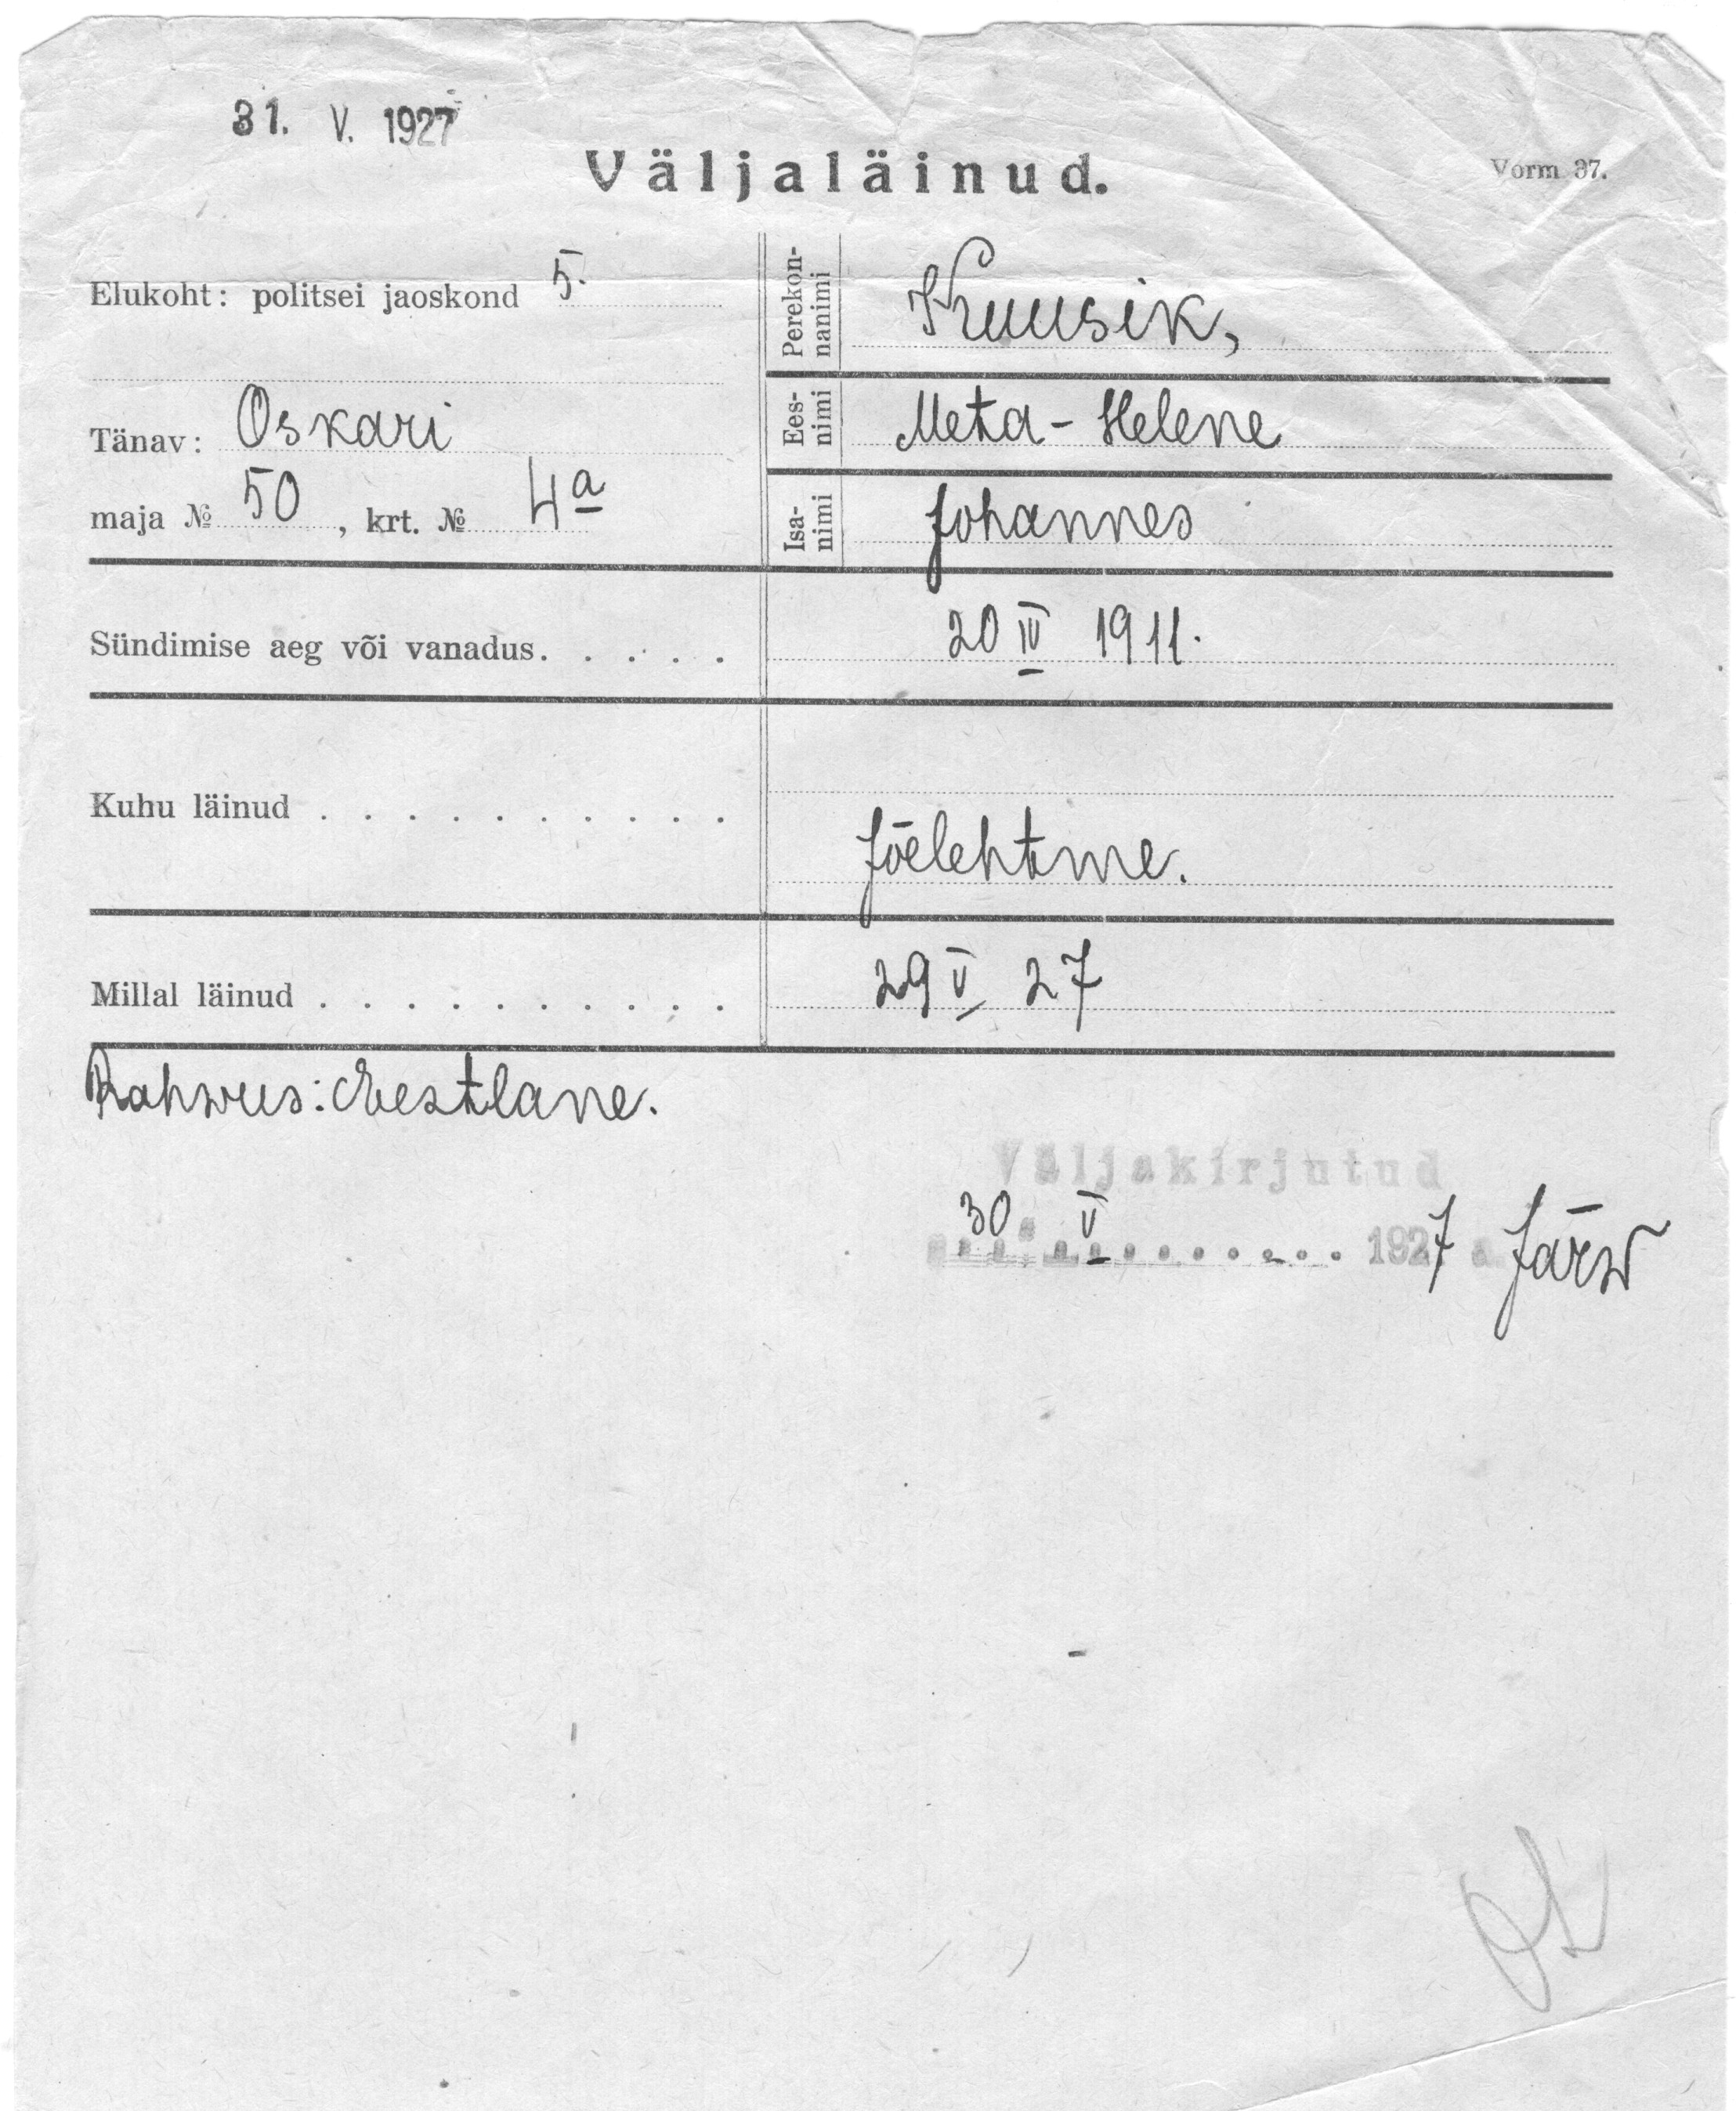 31. V. 1927
Väljaläinud.
Vorm 37.
Elukoht: politsei jaoskond 5.
Tänav: Oskari
maja № 50, krt. № 4a
Perekon-
nanimi
Kuusik,
Ees-
nimi
Meta - Helene
Isa-
nimi
Johannes
Sündimise aeg või vanadus. . . . . 20 IV 1911.
Kuhu läinud . . . . . . . . . . Jõelehtme.
Millal läinud . . . . . . . . . . 29 V 27
Rahwus: Eestlane.
Väljakirjutud
30. V. . . . . . . . 1927 a. Järw